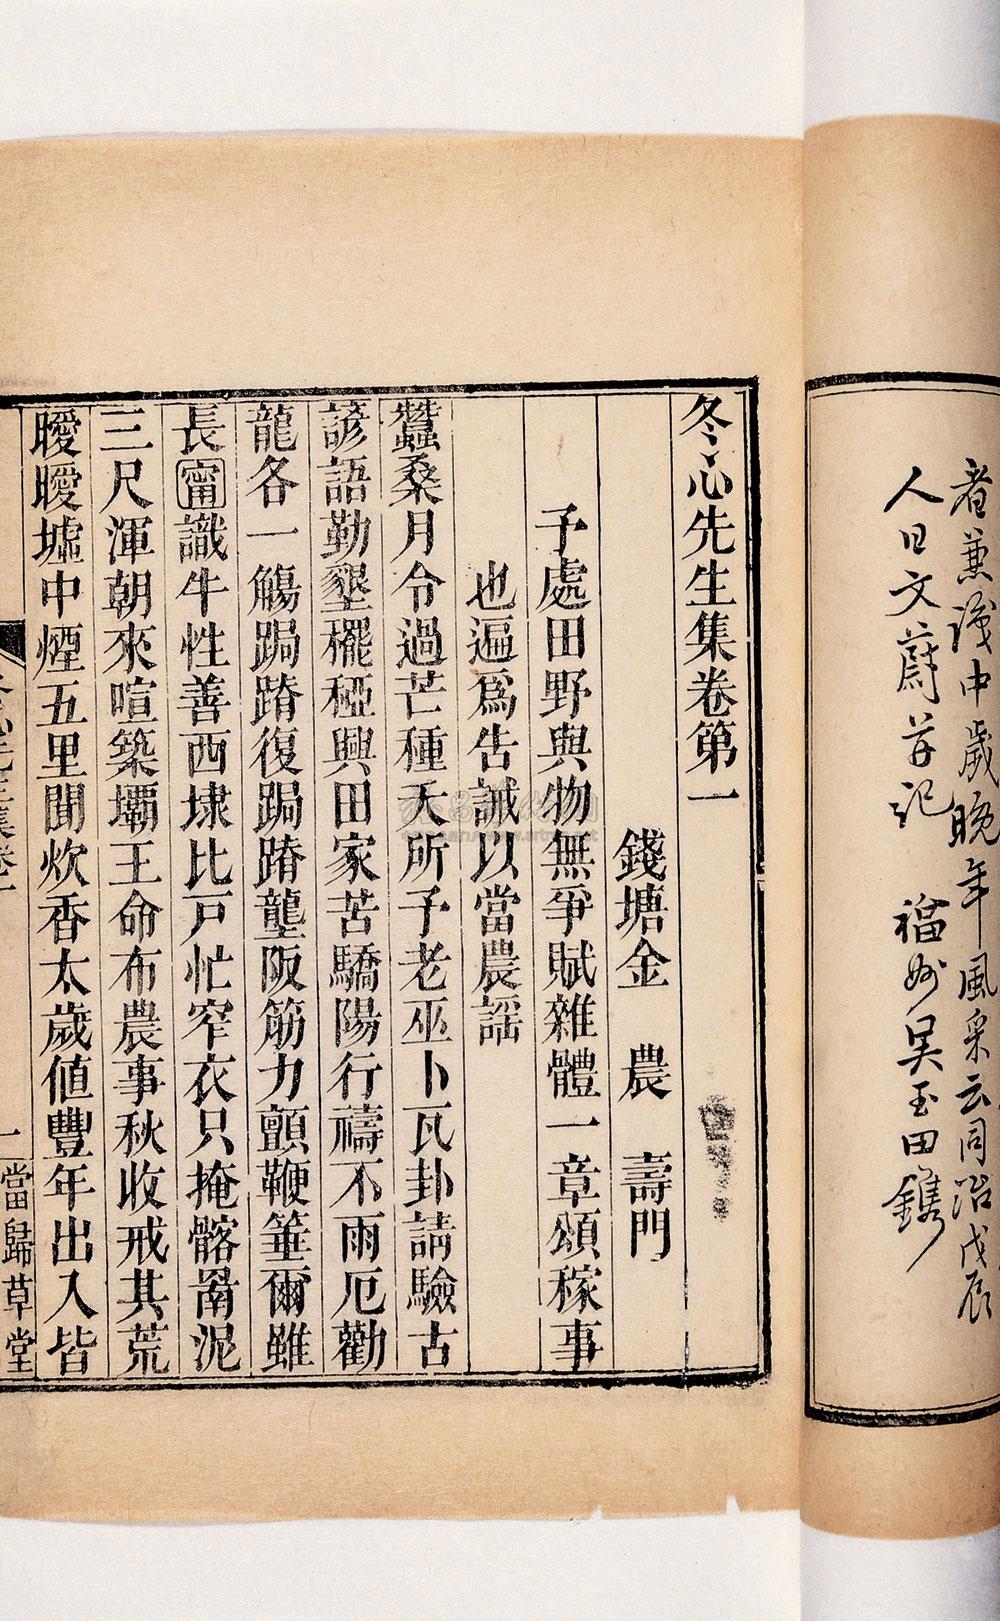 者兼識中歲晚年風采云同治戊辰
人日文蔚并記　福州吳玉田鐫
冬心先生集卷第一
錢塘金　農　壽門
予處田野與物無爭賦雜體一章頌稼事
也遍爲告誡以當農謡
蠶桑月令過芒種天所予老巫卜瓦卦請驗古
諺語勤墾穲稏興田家苦驕陽行禱不雨厄勸
龍各一觴跼蹐復跼蹐壟阪筋力顫鞭箠爾雖
長甯識牛性善西埭比戸忙窄衣只掩髂罱泥
三尺渾朝來喧築壩王命布農事秋收戒其荒
曖曖墟中煙五里聞炊香太歲値豐年出入皆
一
當歸草堂